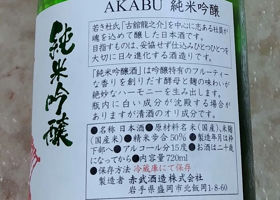 AKABU 純米吟醸
若き杜氏「古舘龍之介」を中心に志ある社員が
魂を込めて醸した日本酒です。
目指すものは、妥協せず仕込みひとつひとつを
大切に日々進化する酒造りです。
「純米吟醸酒」は吟醸特有のフルーティー
な香りを創りだす酵母と麹の味わいが
絶妙なハーモニーを生み出します。
瓶内に白い成分が沈殿する場合
がありますが清酒のオリ成分です。
●名称 日本酒 ●原材料名 米(国産)、米麹
(国産) ●精米歩合 50% ●製造年月は枠
下部へ ●アルコール分15度 ●お酒は二十歳
になってから ●内容量720ml
●保存方法 冷蔵庫にて保存
製造者 赤武酒造株式会社
岩手県盛岡市北飯岡1-8-60
純米吟醸